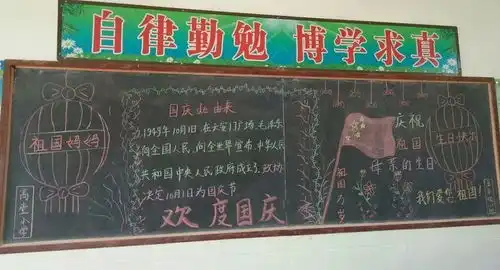 自律勤勉 博学求真
祖国妈妈
国庆的由来
1949年10月1日,在天安门广场,毛泽东
向全国人民,向全世界宣布,中华人民
共和国中央人民政府成立了,政协
决定10月1日为国庆节
欢度国庆
祖国万岁
庆祝
祖国
母亲的生日
生日快乐
我们爱你祖国!